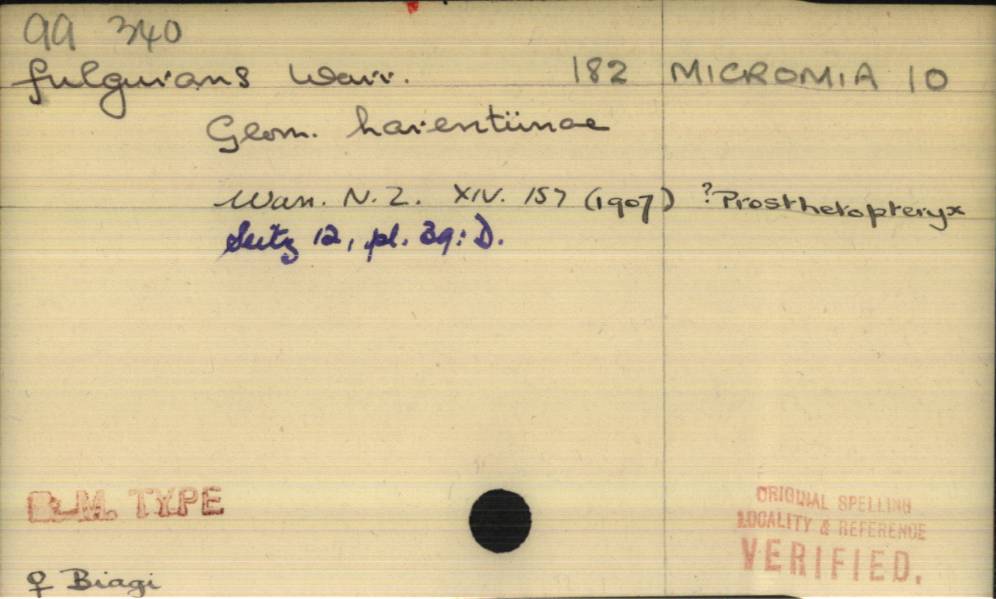 99 340
fulgurans Warr. 182 MICROMIA 10
Geom. larentiinae
Warr. N. Z. XIV. 157 (1907) ?Prosthetopteryx
Seitz 12, pl. 39: D.
B.M. TYPE
ORIGINAL SPELLING
LOCALITY & REFERENCE
VERIFIED.
♀ Biagi